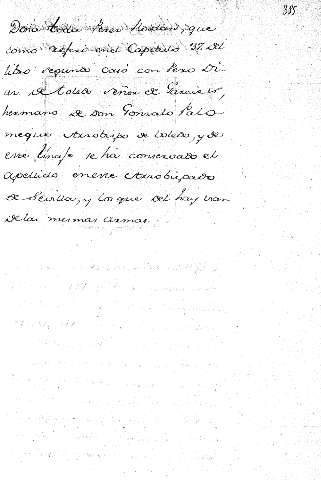 315
Doña Perez que
como referi en el Capitulo 37. del
libro segundo casó con Pero Di-
az de Señor de
hermano de Don Gonzalo Palo-
meque Arzobispo de toledo, y de
este linaje se ha conservado el
Apellido en este Arzobispado
de Sevilla, y los que del hay usan
de las mismas armas.